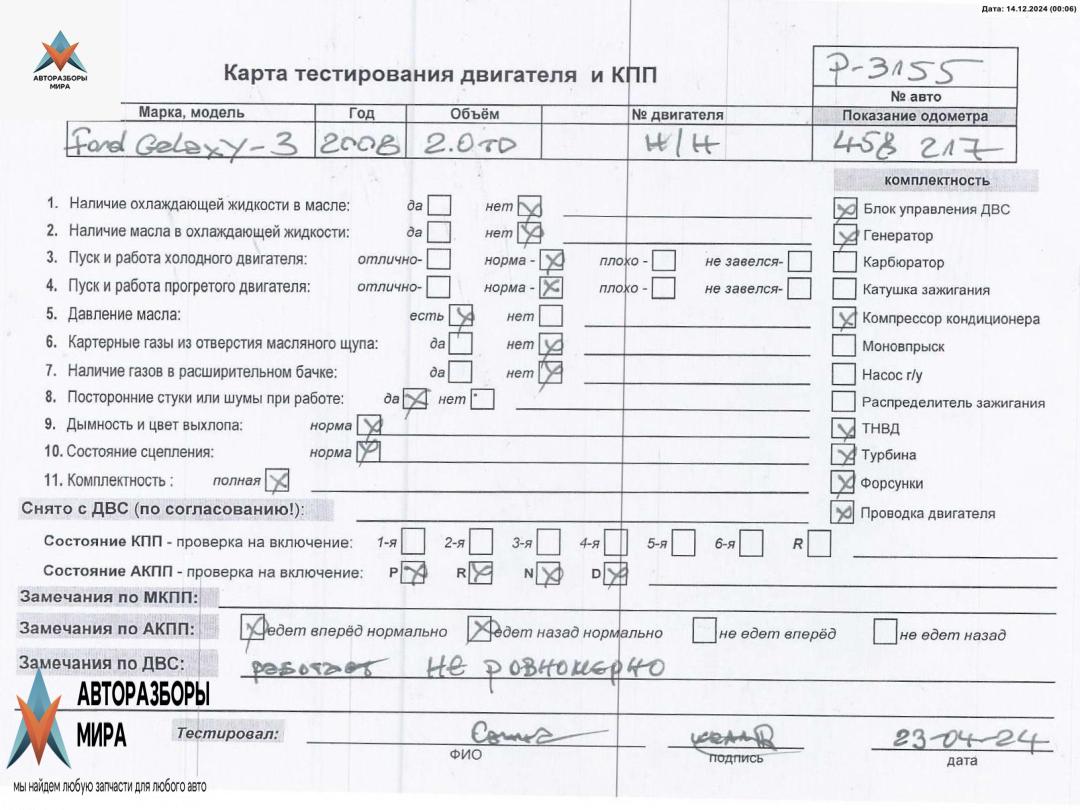 Дата: 14.12.2024 (00:06)
АВТОРАЗБОРЫ
МИРА
Карта тестирования двигателя и КПП
P-3155
№ авто
Марка, модель Год Объём № двигателя Показание одометра
Ford Galaxy-3 2008 2.0TD Н/Н 458 217
комплектность
1. Наличие охлаждающей жидкости в масле: да нет
Блок управления ДВС
2. Наличие масла в охлаждающей жидкости: да нет
Генератор
3. Пуск и работа холодного двигателя: отлично- норма - плохо - не завелся-
Карбюратор
4. Пуск и работа прогретого двигателя: отлично- норма - плохо - не завелся-
Катушка зажигания
5. Давление масла: есть нет
Компрессор кондиционера
6. Картерные газы из отверстия масляного щупа: да нет
Моновпрыск
7. Наличие газов в расширительном бачке: да нет
Насос г/у
8. Посторонние стуки или шумы при работе: да нет
Распределитель зажигания
9. Дымность и цвет выхлопа: норма
ТНВД
10. Состояние сцепления: норма
Турбина
11. Комплектность : полная
Форсунки
Снято с ДВС (по согласованию!):
Проводка двигателя
Состояние КПП - проверка на включение: 1-я 2-я 3-я 4-я 5-я 6-я R
Состояние АКПП - проверка на включение: P R N D
Замечания по МКПП:
Замечания по АКПП: едет вперёд нормально едет назад нормально не едет вперёд не едет назад
Замечания по ДВС: работает не ровномерно
АВТОРАЗБОРЫ
МИРА
Тестировал: 23-04-24
ФИО подпись дата
мы найдем любую запчасти для любого авто